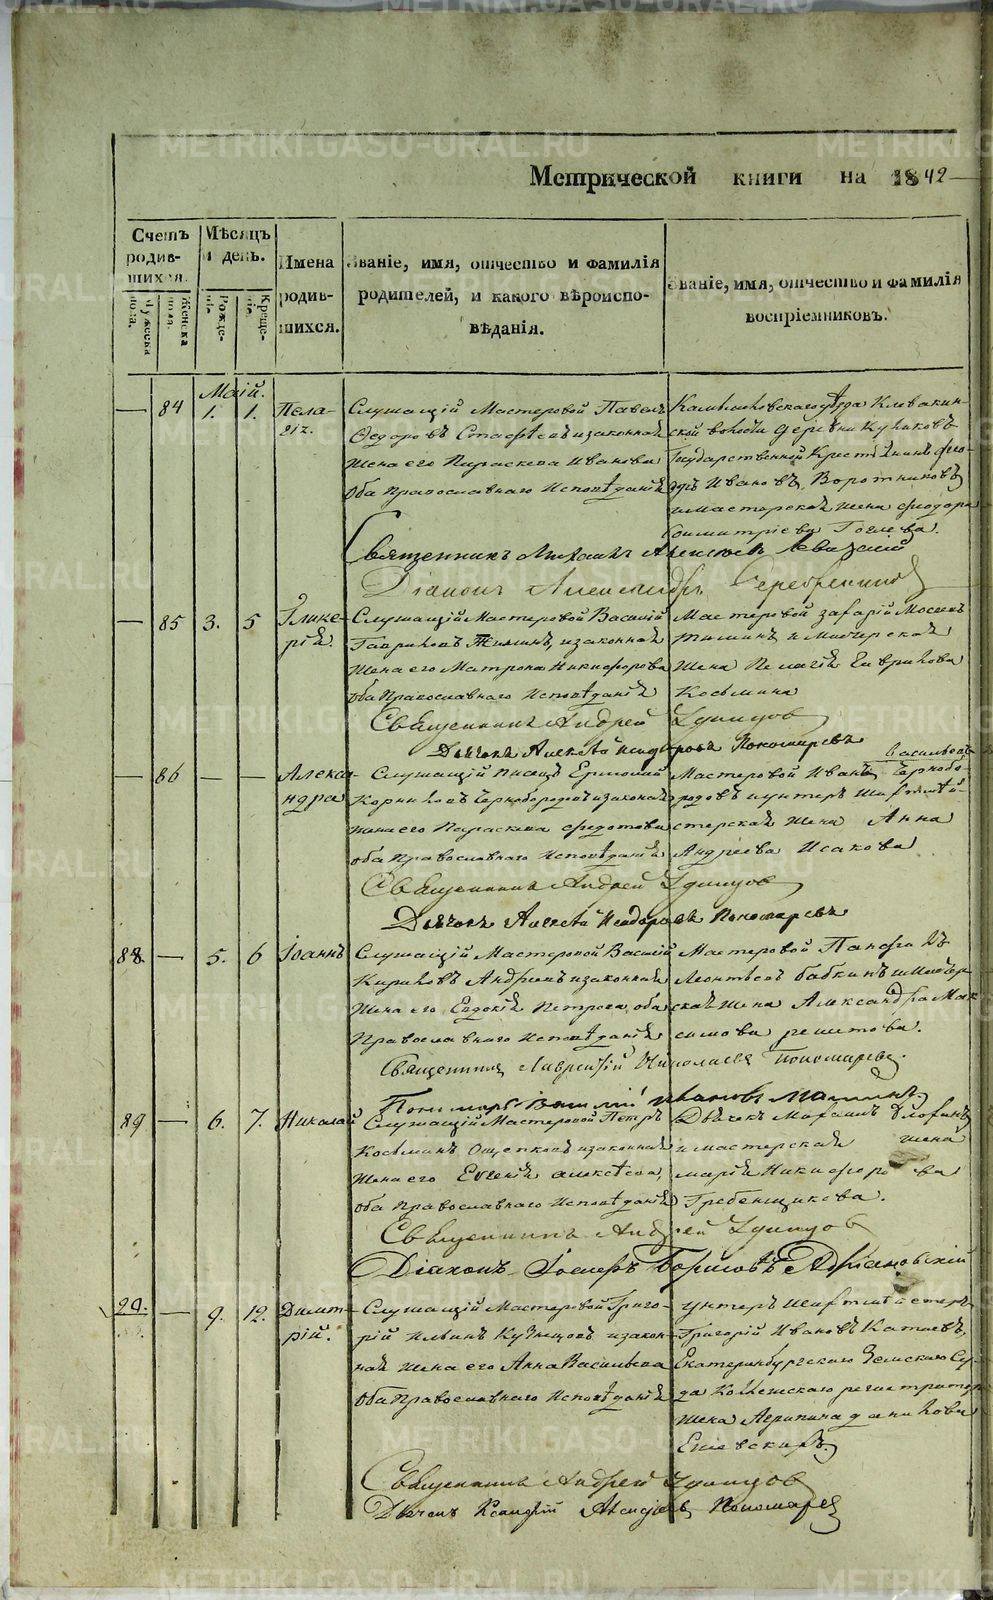 Метрической книги на 1842
Счетъ родив-шихся.
Мѣсяцъ и день.
Имена родив-шихся.
Званіе, имя, отчество и фамилія родителей, и какого вѣроиспо-вѣданія.
Званіе, имя, отчество и фамилія воспріемниковъ.
Мужеска пола.
Женска пола.
Рожде-нія.
Креще-нія.
Маій.
— 84 1. 1. Пела-гія.
Служащій Мастеровой Павелъ
Федоровъ и законная
жена его Параскева Иванова
оба Православнаго Исповѣданія
Камышловскаго уѣзда Клевакин-
ской волости деревни Куликовъ
Государственной Крестьянинъ Фео-
Ивановъ Воротниковъ
и мастерская жена Феодора
Димитріева
Священникъ Михаилъ
Діаконъ Александръ Серебренниковъ
— 85 3. 5 Глике-рія.
Служащій Мастеровой Василій
Гавриловъ и законная
жена его Матрона Никифорова
оба Православнаго Исповѣданія
Мастеровой Захарій
и Мастерская
жена Пелагія Гаврилова
Косьмина
Священникъ Андрей Удинцов
Дьячекъ Алексѣй Пономаревъ
— 86 — — Алекса-ндра
Служащій писецъ Ермолай
Корниловъ Чернобородовъ и законная
жена его Параскева Федотова
оба Православнаго Исповѣданія
Мастеровой Иванъ Васильевъ Чернобо-
родовъ и унтеръ Шихтмей-
стерская жена Анна
Андреева Исакова
Священникъ Андрей Удинцов
Дьячекъ Алексѣй Пономаревъ
88. — 5. 6 Іоаннъ
Служащій Мастеровой Василій
Кириловъ и законная
жена его Евдокія Петрова, оба
Православнаго Исповѣданія
Мастеровой Панфилъ
Леонтьевъ Бабкинъ и Мастер-
ская жена Александра Мак-
симова Решетова.
Священникъ Лаврентій Николаевъ Пономаревъ.
Пономарь Василій Ивановъ
89 — 6. 7. Николай
Служащій Мастеровой Петръ
Косьминъ Ощепковъ и законная
жена его Евгенія Алексѣева,
оба Православнаго Исповѣданія
Дьячекъ Михаилъ
и мастерская жена
Марія Никифорова
Гребенщикова.
Священникъ Андрей Удинцов
Діаконъ Борисовъ Адріановскій
90. — 9. 12. Димит-рій.
Служащій Мастеровой Григо-
рій Ильинъ Кузнецовъ и закон-
ная жена его Анна Васильева
оба Православнаго Исповѣданія
Унтеръ Шихтмейстеръ
Григорій Ивановъ Катаевъ,
Екатеринбургскаго Земскаго Су-
да Коллежскаго регистратора
жена Агрипина Данилова
Священникъ Андрей Удинцов
Дьячекъ Пономаревъ
METRIKI.GASO-URAL.RU